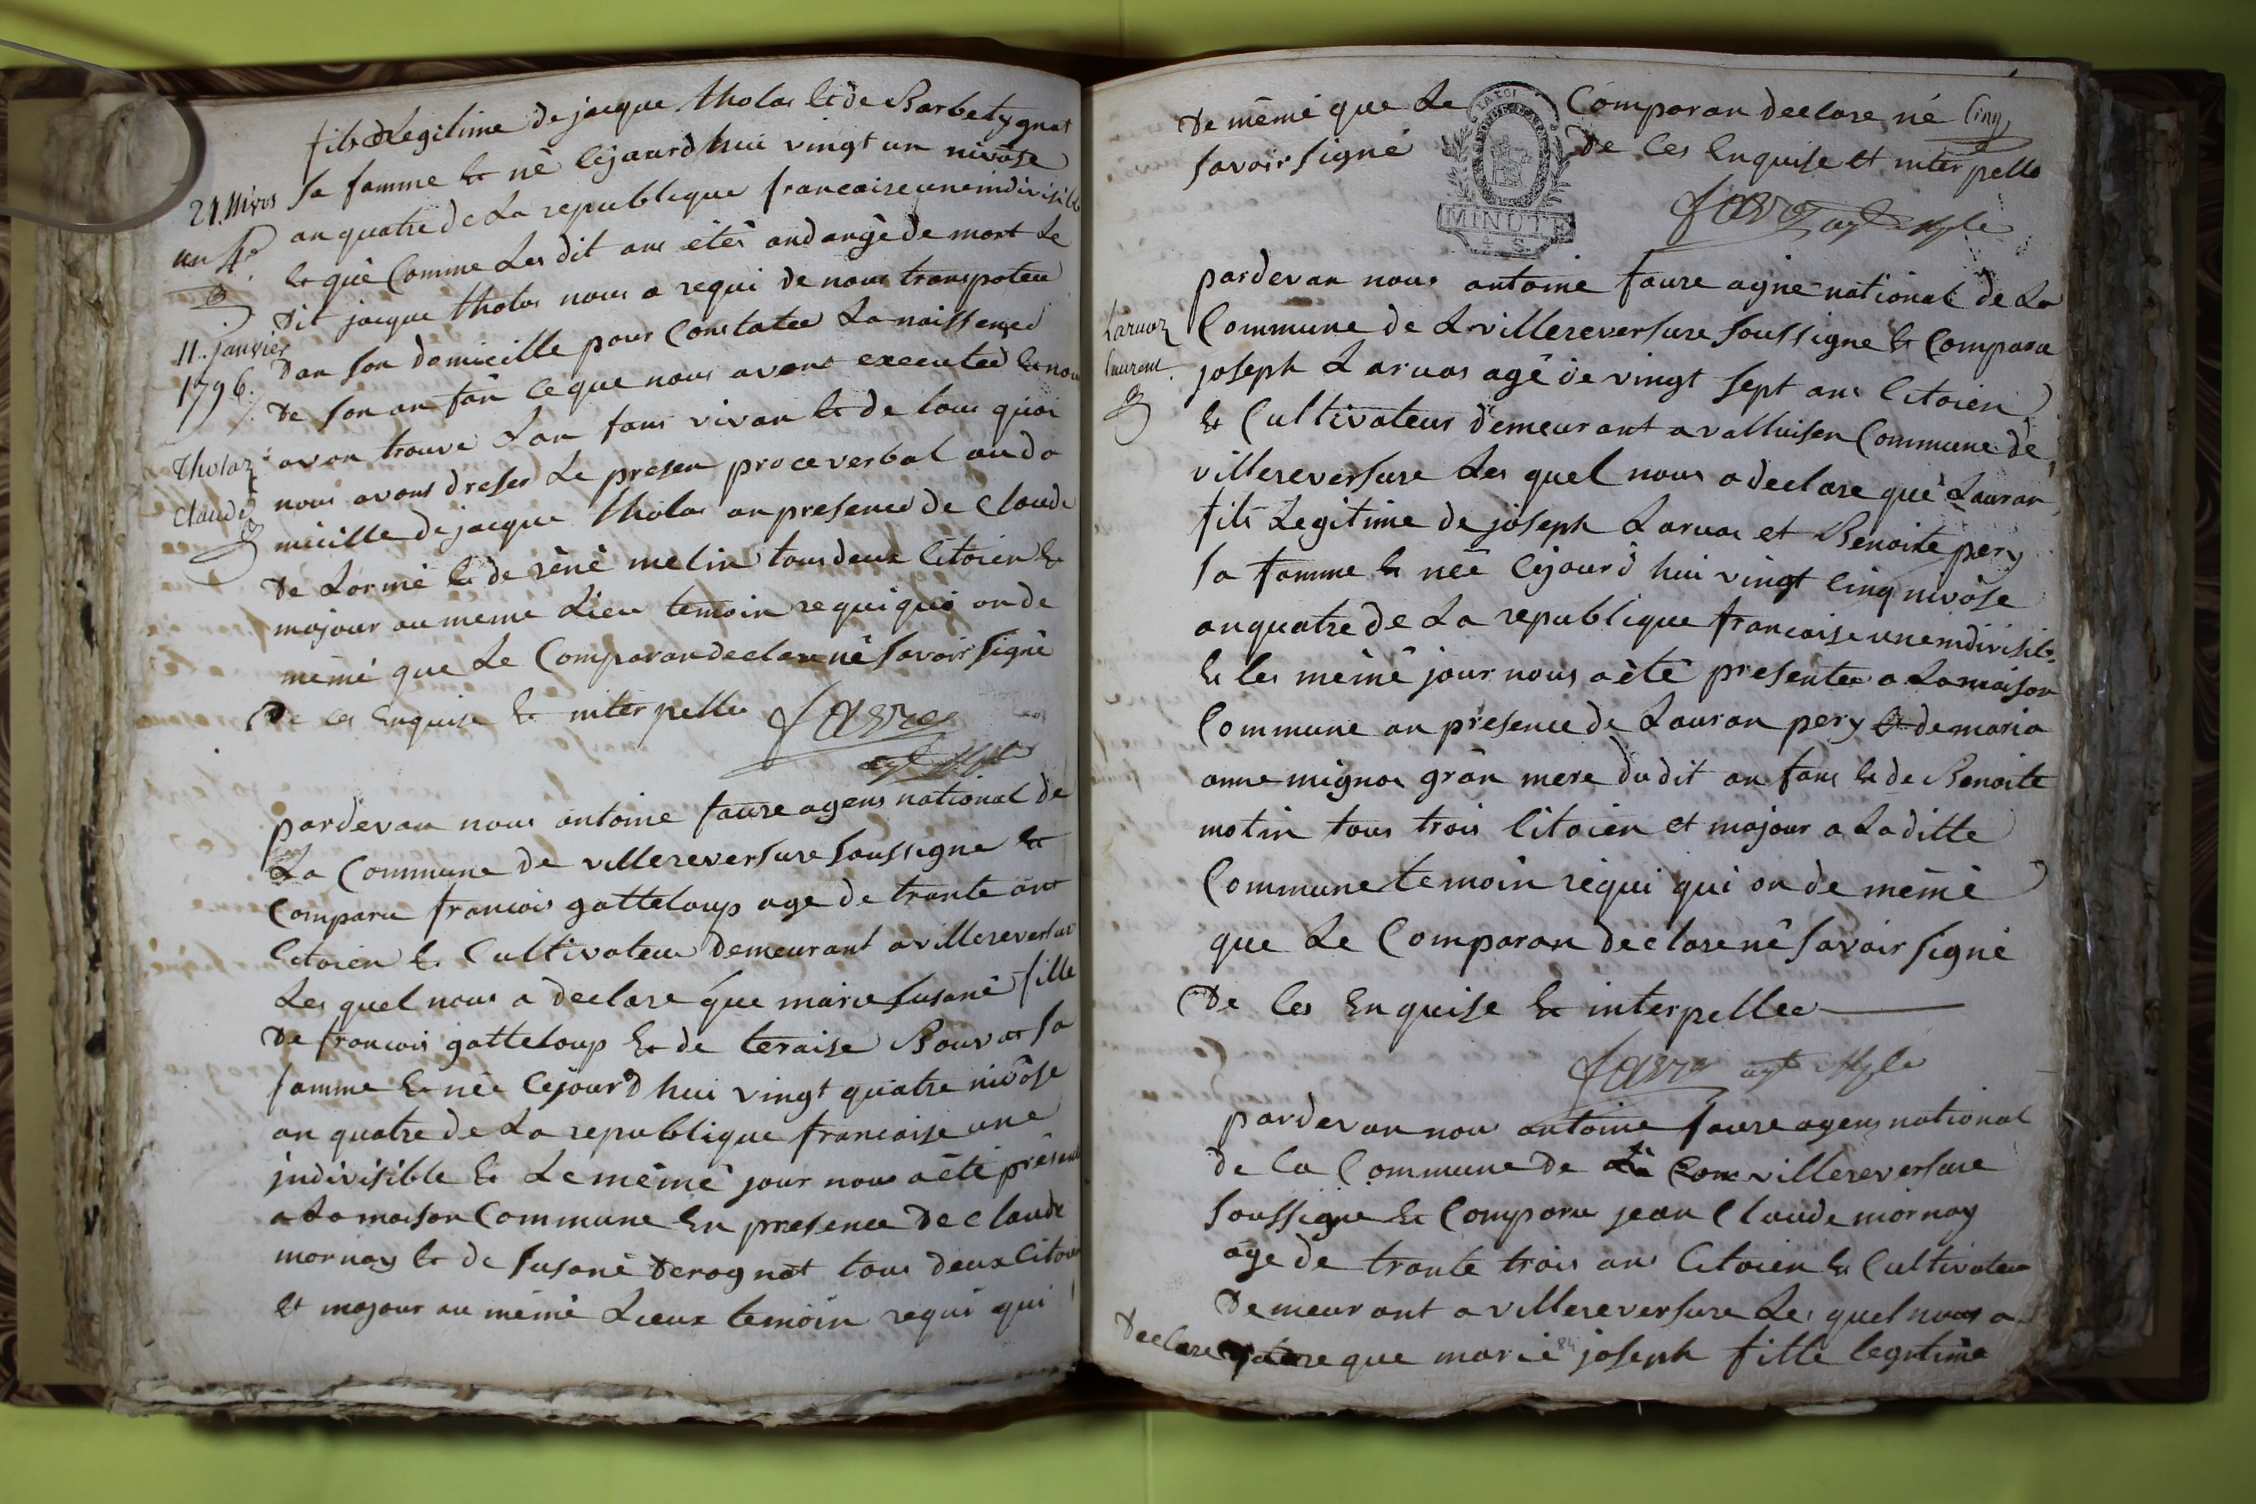 fils Legitime de jacque tholas et de Barbe tygnat
sa famme et nê cejaurdhui vingt un nivôse
an quatre de La republique francaise une indivisible
et quê Comme Les dit ans étês andangê de mort Le
Dit jacque tholas nous a requi de nous transpoteu
Dan son domicille pour Constatee La naissence
De son an fan ce que nous avons executed et nous
avon trouve Lan fans vivan et de lous quoi
nous avons dreser Le presen proceverbal au do
micille de jacque tholas an presence de Claude
De Lorme et de rênê melin tous deux Citoien et
majour au meme Lieu temoin requi qui on de
mêmê que Le Comparan declare nê savoir signê
De ces Enquise et interpellee
favre
agt mple
21. Nivos
an 4e.
11. janvier
1796.
Tholaz
Claude
pardevan nous antoine favre agens national de
La Commune de villereversure soussigne et
Comparu francois gatteloup age de trante ans
Citoien et Cultivateu demeurant a villereversure
Les quel nous a declare que marie susanê fille
De francois gatteloup et de teraise Bouvat sa
famme et née cejourd hui vingt quatre nivôse
an quatre de La republique francaise une
indivisible et Le mêmê jour nous a êtê présenté
a La maison Commune En presence De claude
mornay et de susanê Derognat tous deux Citoien
et majour au mêmê Lieux temoin requi qui
De mêmê que Le Comparan declare nê
savoir signê De ces Enquise et interpelle
Cinq
LA LOI
MINUTE
4 S.
favre agt mple
Laruaz
laurent.
pardevan nous antoine favre agne national de La
Commune de Lvillereversure soussigne et Comparu
joseph Laruas agê de vingt sept ans Citoien
et Cultivateur demeurant a valluisen Commune de
villereversure Les quel nous a declare quê Lauran
fils Legitime de joseph Laruas et Benoite pery
sa famme et nêe cejourd hui vingt cinq nivôse
anquatre de La republique francaise une indivisible
et les mêmê jour nous a êtê presentee a La maison
Commune an presence de Lauran pery et de maria
anne mignos grân mere dudit an fans et de Benoite
motin tous trois Citoien et majour a Laditte
Commune temoin rêqui qui on de mêmê
que Le Comparan declare nê savoir signê
De ces Enquise et interpellee
favre agt mple
pardevan nou antoine favre agens national
de la Commune de La Com villereversure
soussigne et Comparu jean Claude mornay
age de trante trois ans Citoien et Cultivateu
Demeurant a villereversure Les quel nous a
Declare que marie joseph fille legitime
84